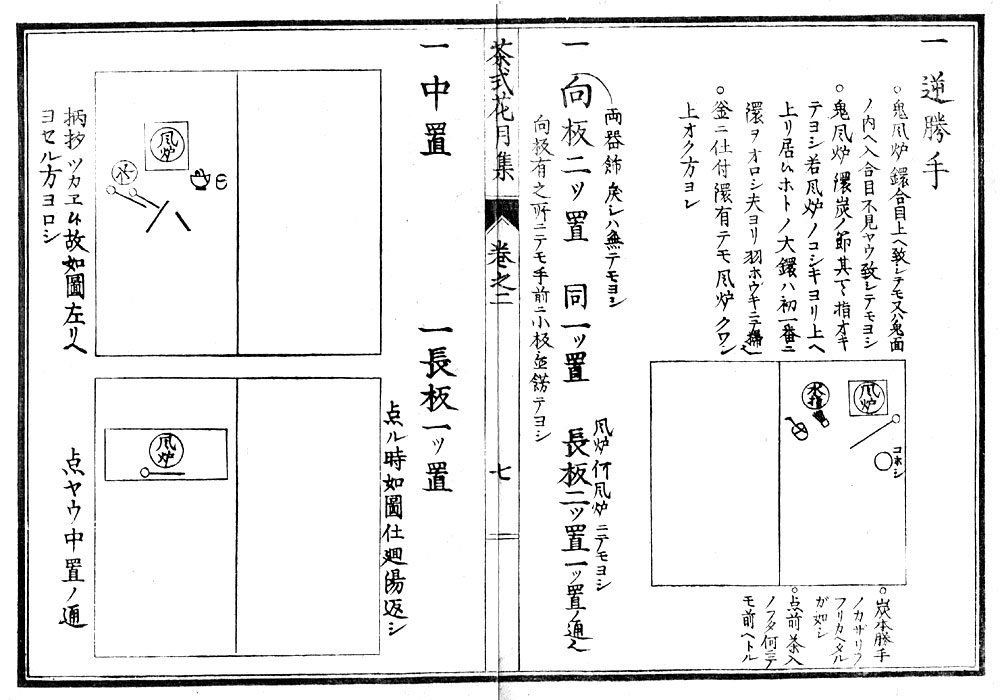 一 逆勝手
○鬼風炉 鐶合目上ヘ致シテモ又ハ鬼面
ノ内ヘ入合目不見ヤウ致シテモヨシ
○鬼風炉 鐶炭ノ節其下ヘ指オキ
テヨシ若風炉ノコシキヨリ上ヘ
上リ居ムホトノ大鐶ハ初一番ニ
鐶ヲオロシ夫ヨリ羽ホウキニテ掃ヘシ
○釜ニ仕付鐶有テモ風炉クワン
上オク方ヨシ
風炉
水指
コホシ
○炭本勝手
ノカザリヲ
フリカヘタル
が如シ
○点前茶入
ノフタ何ニテ
モ前ヘトル
両器飾戻シハ無テモヨシ
一 向板二ッ置 同一ッ置 長板二ッ置一ッ置ノ通ヘ
風炉何風炉ニテモヨシ
向板有之所ニテモ手前ニ小板並餝テヨシ
茶式花月集 巻之二 七
一 中置
風炉
水
柄杓ツカエム故如圖左リヘ
ヨセル方ヨロシ
一 長板一ッ置
点ル時如圖仕廻湯返シ
風炉
点ヤウ中置ノ通